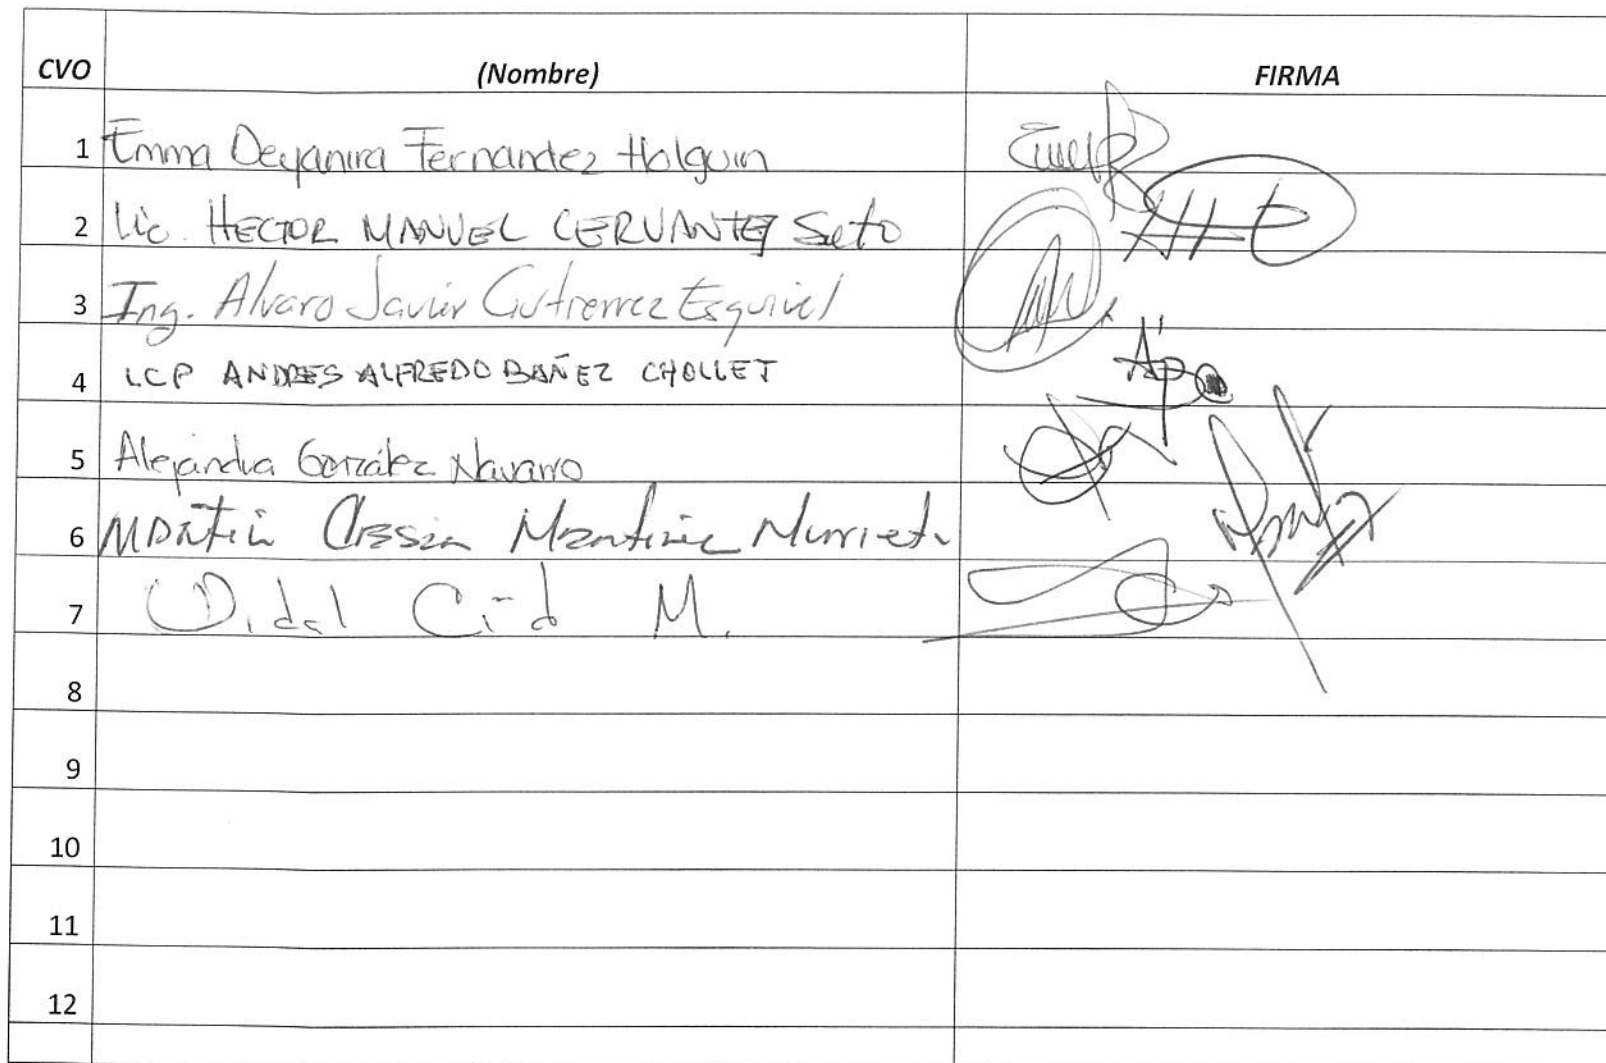 CVO (Nombre) FIRMA
1 Emma Deyanira Fernandez Holguin
2 Lic. HECTOR MANUEL CERVANTES Soto
3 Ing. Alvaro Javier Gutierrez Esquivel
4 LCP ANDRES ALFREDO BAÑEZ CHOLLET
5 Alejandra González Navarro
6 Martin Martinez Murrieta
7 Vidal Cid M.
8
9
10
11
12